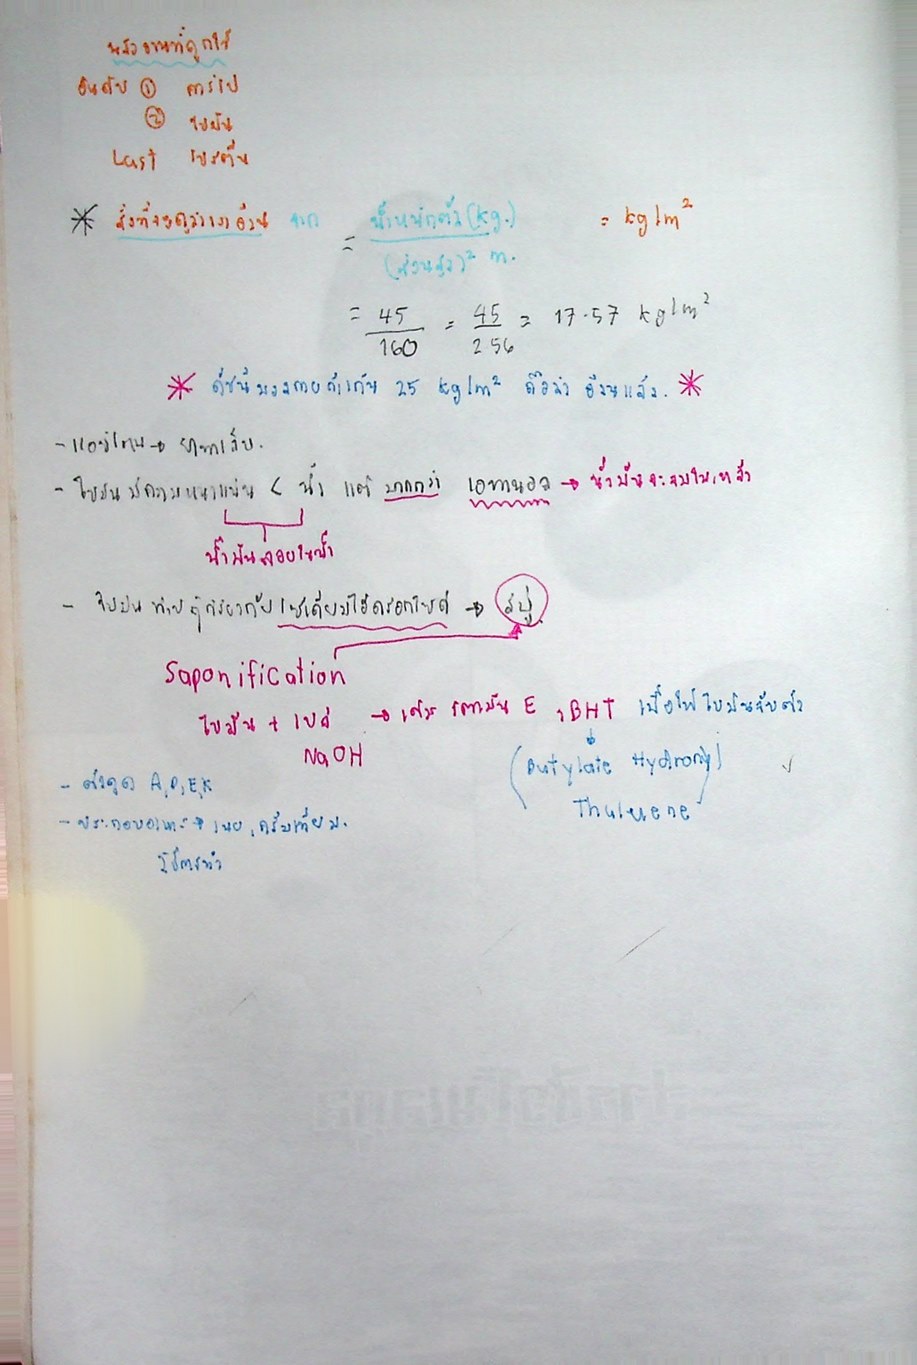 พลังงานที่ถูกใช้
อันดับ ① คาร์โบ
② ไขมัน
Last โปรตีน
* สิ่งที่จะดูว่าเราอ้วน จาก = น้ำหนักตัว (kg.) = kg/m²
(ส่วนสูง)² m.
= 45 = 45 = 17.57 kg/m²
160 256
* ดัชนีมวลกายถ้าเกิน 25 kg/m² ถือว่า อ้วนแล้ว. *
- ไขมันมีความหนาแน่น < น้ำ แต่ มากกว่า เอทานอล → น้ำมันจะจมในเหล้า
น้ำมันลอยในน้ำ
- ไขมันทำปฏิกิริยากับโซเดียมไฮดรอกไซด์ → สบู่
Saponification
ไขมัน + เบส → เติม วิตามิน E , BHT เพื่อให้ไขมันจับตัว
NaOH
(Butylate Hydroxy)
Thuluene
- ตัวดูด A, D, E, K
- ประกอบอาหาร → เนย, ครีมเทียม.